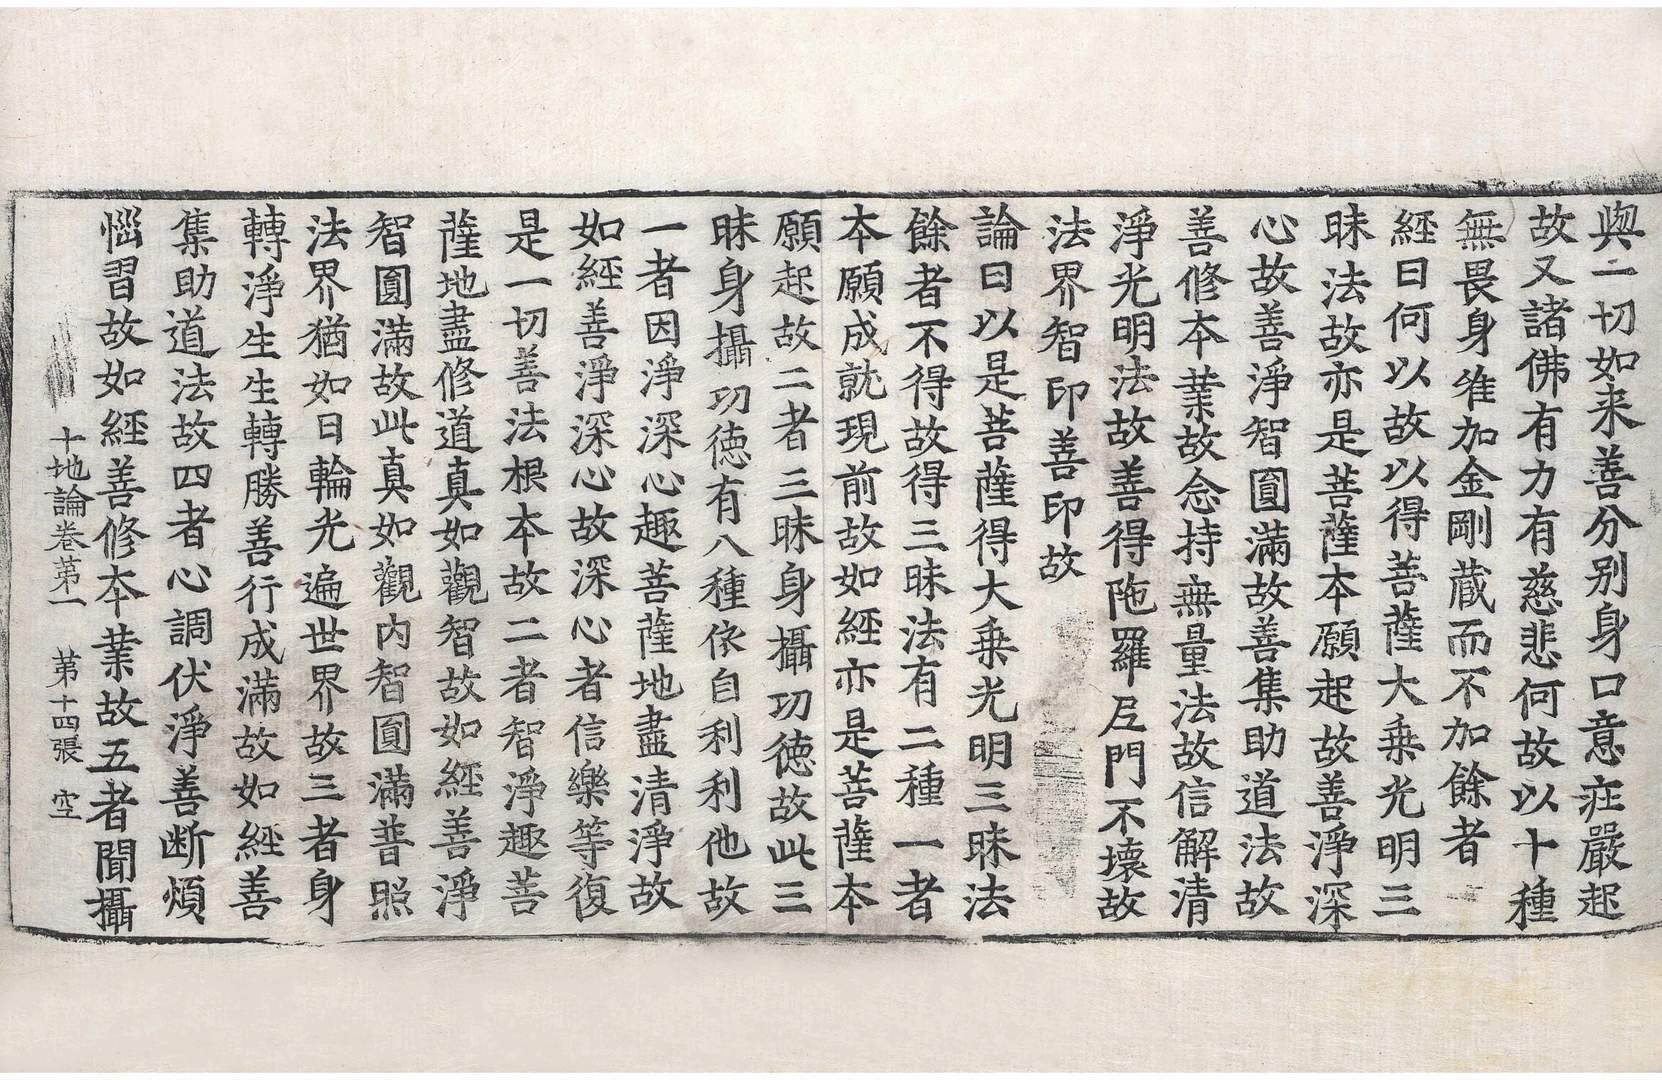 與一切如来善分別身口意莊嚴起
故又諸佛有力有慈悲何故以十種
無畏身唯加金剛藏而不加餘者
經曰何以故以得菩薩大乗光明三
昧法故亦是菩薩本願起故善淨深
心故善淨智圓滿故善集助道法故
善修本業故念持無量法故信解清
淨光明法故善得陁羅尼門不壞故
法界智印善印故
論曰以是菩薩得大乗光明三昧法
餘者不得故得三昧法有二種一者
本願成就現前故如經亦是菩薩本
願起故二者三昧身攝功德故此三
昧身攝功德有八種依自利利他故
一者因淨深心趣菩薩地盡清淨故
如經善淨深心故深心者信樂等復
是一切善法根本故二者智淨趣菩
薩地盡修道真如觀智故如經善淨
智圓滿故此真如觀内智圓滿普照
法界猶如日輪光遍世界故三者身
轉淨生生轉勝善行成滿故如經善
集助道法故四者心調伏淨善断煩
惱習故如經善修本業故五者聞攝
十地論卷第一　第十四張　空